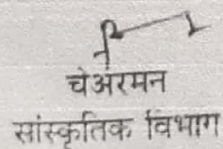 चेअरमन
सांस्कृतिक विभाग